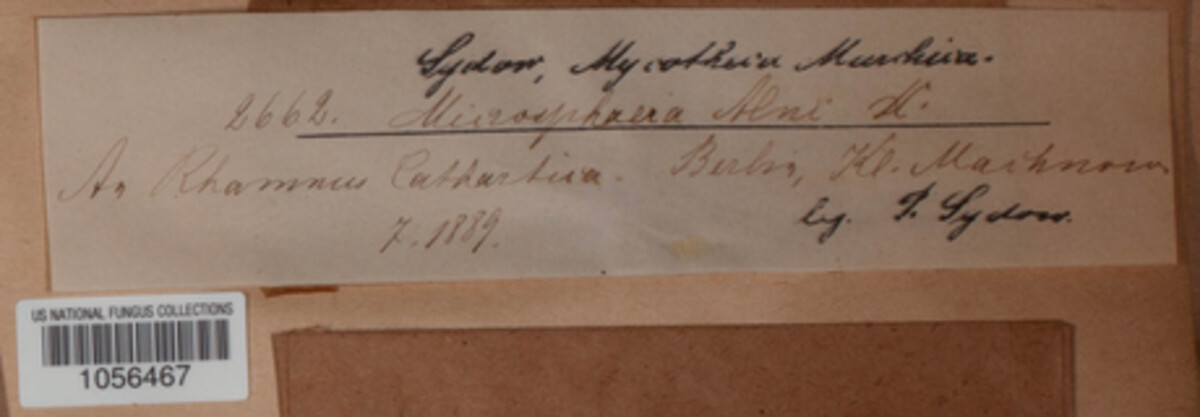 Sydow, Mycotheca Marchica.
2662. Microsphaeria Alni W.
An Rhamnus Cathartica. Berlin, Kl. Machnow
7. 1889.
leg. P. Sydow.
US NATIONAL FUNGUS COLLECTIONS
1056467